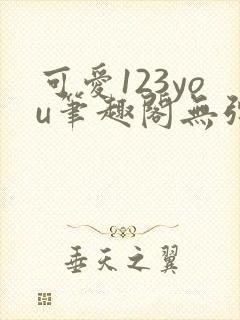 可愛123yo
u筆趣閣無
垂天之翼